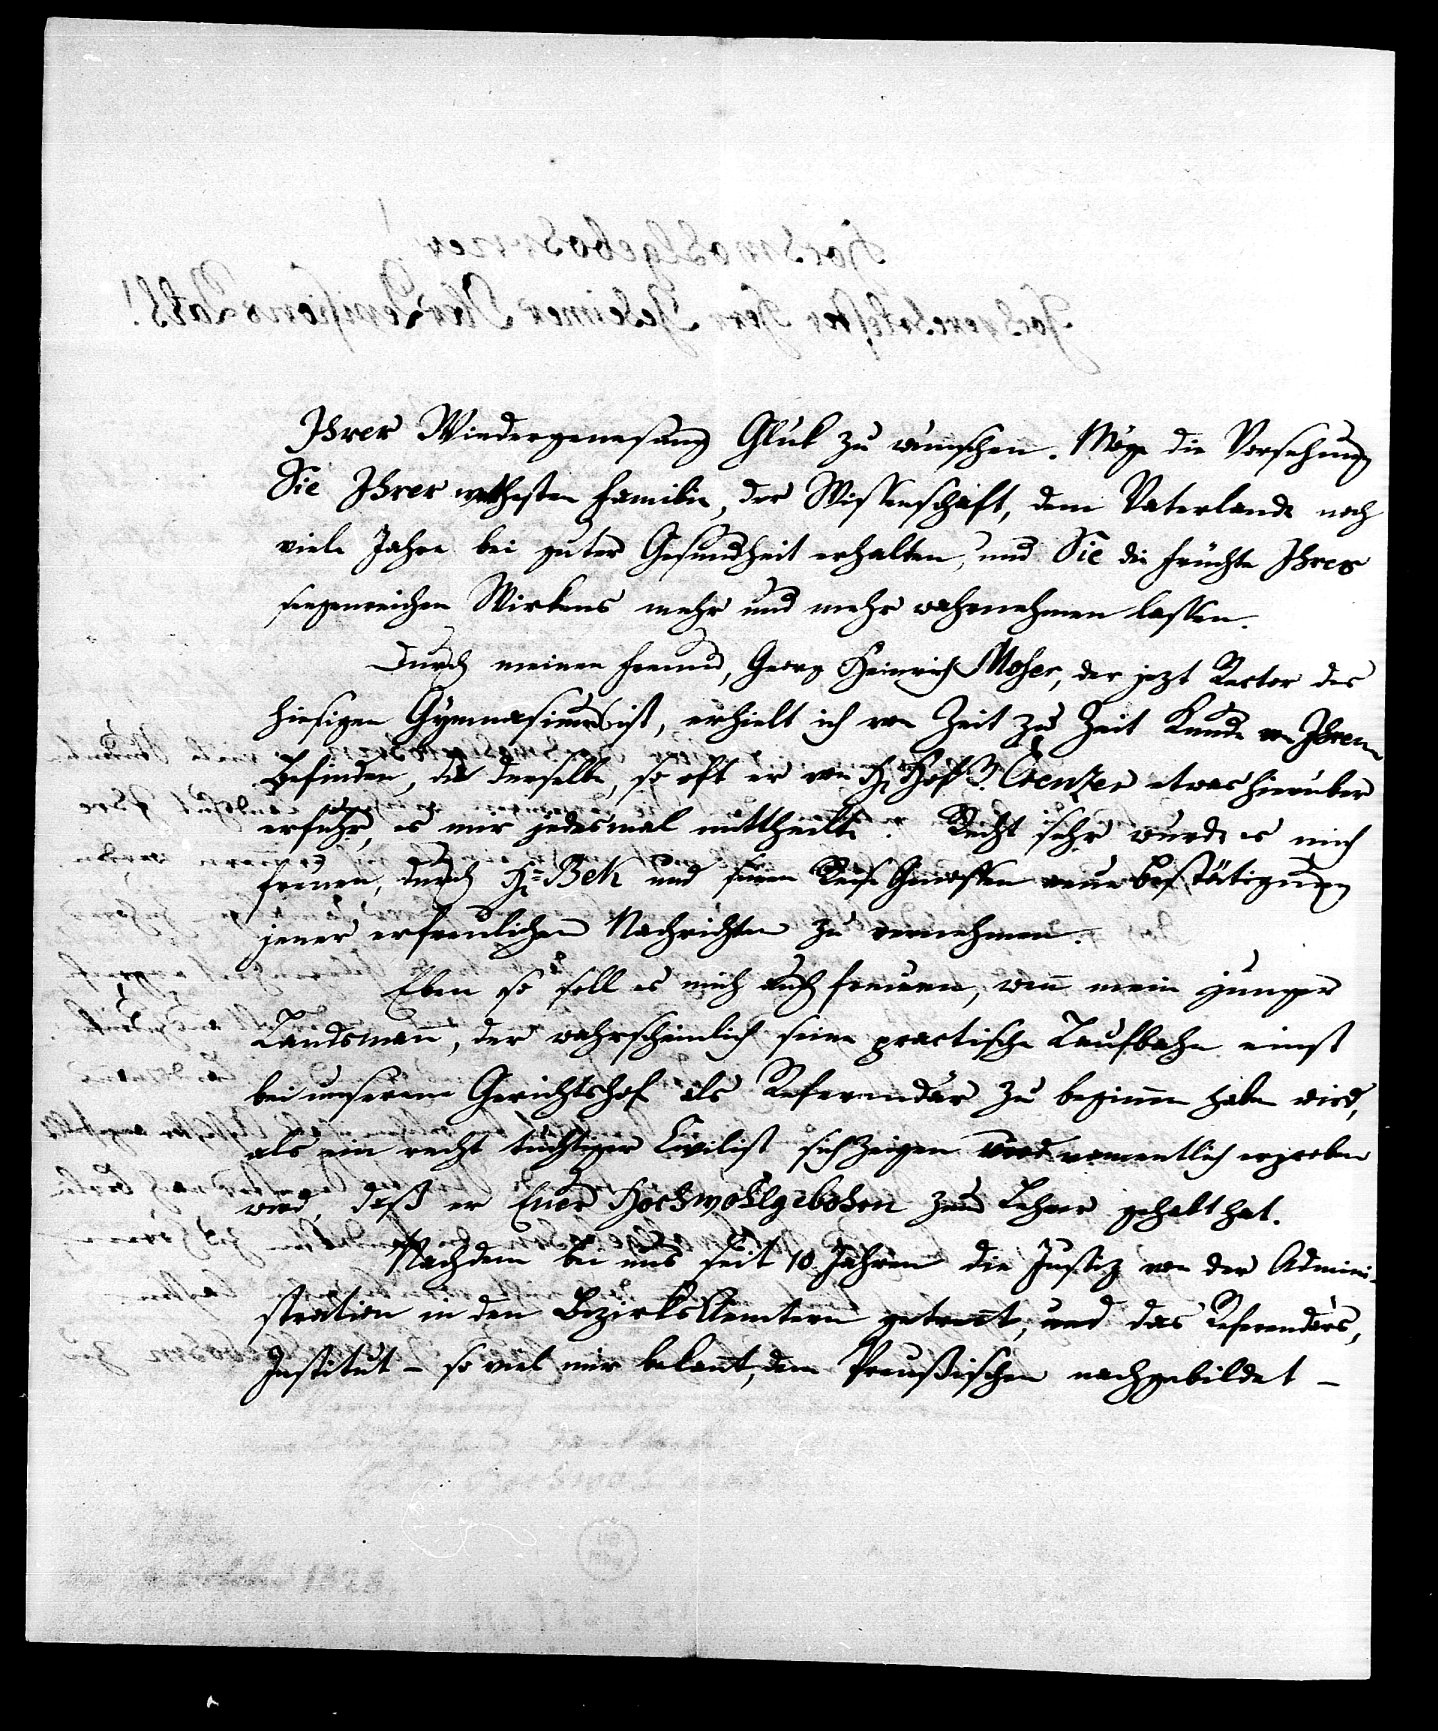 Ihrer Wiedergenesung Glük zu wünschen. Möge die Vorsehung
Sie Ihrer werthesten Familie, der Wissenschaft, dem Vaterlande noch
viele Jahre bei guter Gesundheit erhalten, und Sie die Früchte Ihres
segenreichen Wirkens mehr und mehr wahrnehmen lassen.
Durch meinen Freund, Georg Heinrich Moser, der jezt Rector des
hiesigen Gymnasiums ist, erhielt ich von Zeit zu Zeit Kunde von Ihrem
Befinden, da derselbe, so oft er von H. Hof R. Creuzer etwas hierüber
erfuhr, es mir jedesmal mittheilte. Recht sehr wurde es mich
freuen, durch H. Bek und seinen Reise Genossen neue Bestätigung
jener erfreulichen Nachrichten zu vernehmen.
Eben so soll es mich auch freuen, wen̅ mein junger
Landsman̅, der wahrscheinlich seine practische Laufbahn einst
bei unserem Gerichtshof als Referendär zu beginnen haben wird,
als ein recht tüchtiger Civilist sich zeigen und namentlich erproben
wird, daß er Euer Hochwohlgeboren zum Lehrer gehabt hat.
Nachdem bei uns seit 10 Jahren die Justiz von der Admini-
stration in den Bezirks Aemtern getren̅t, und das Referendärs,
Institut – so viel mir bekan̅t, dem Preußischen nachgebildet –